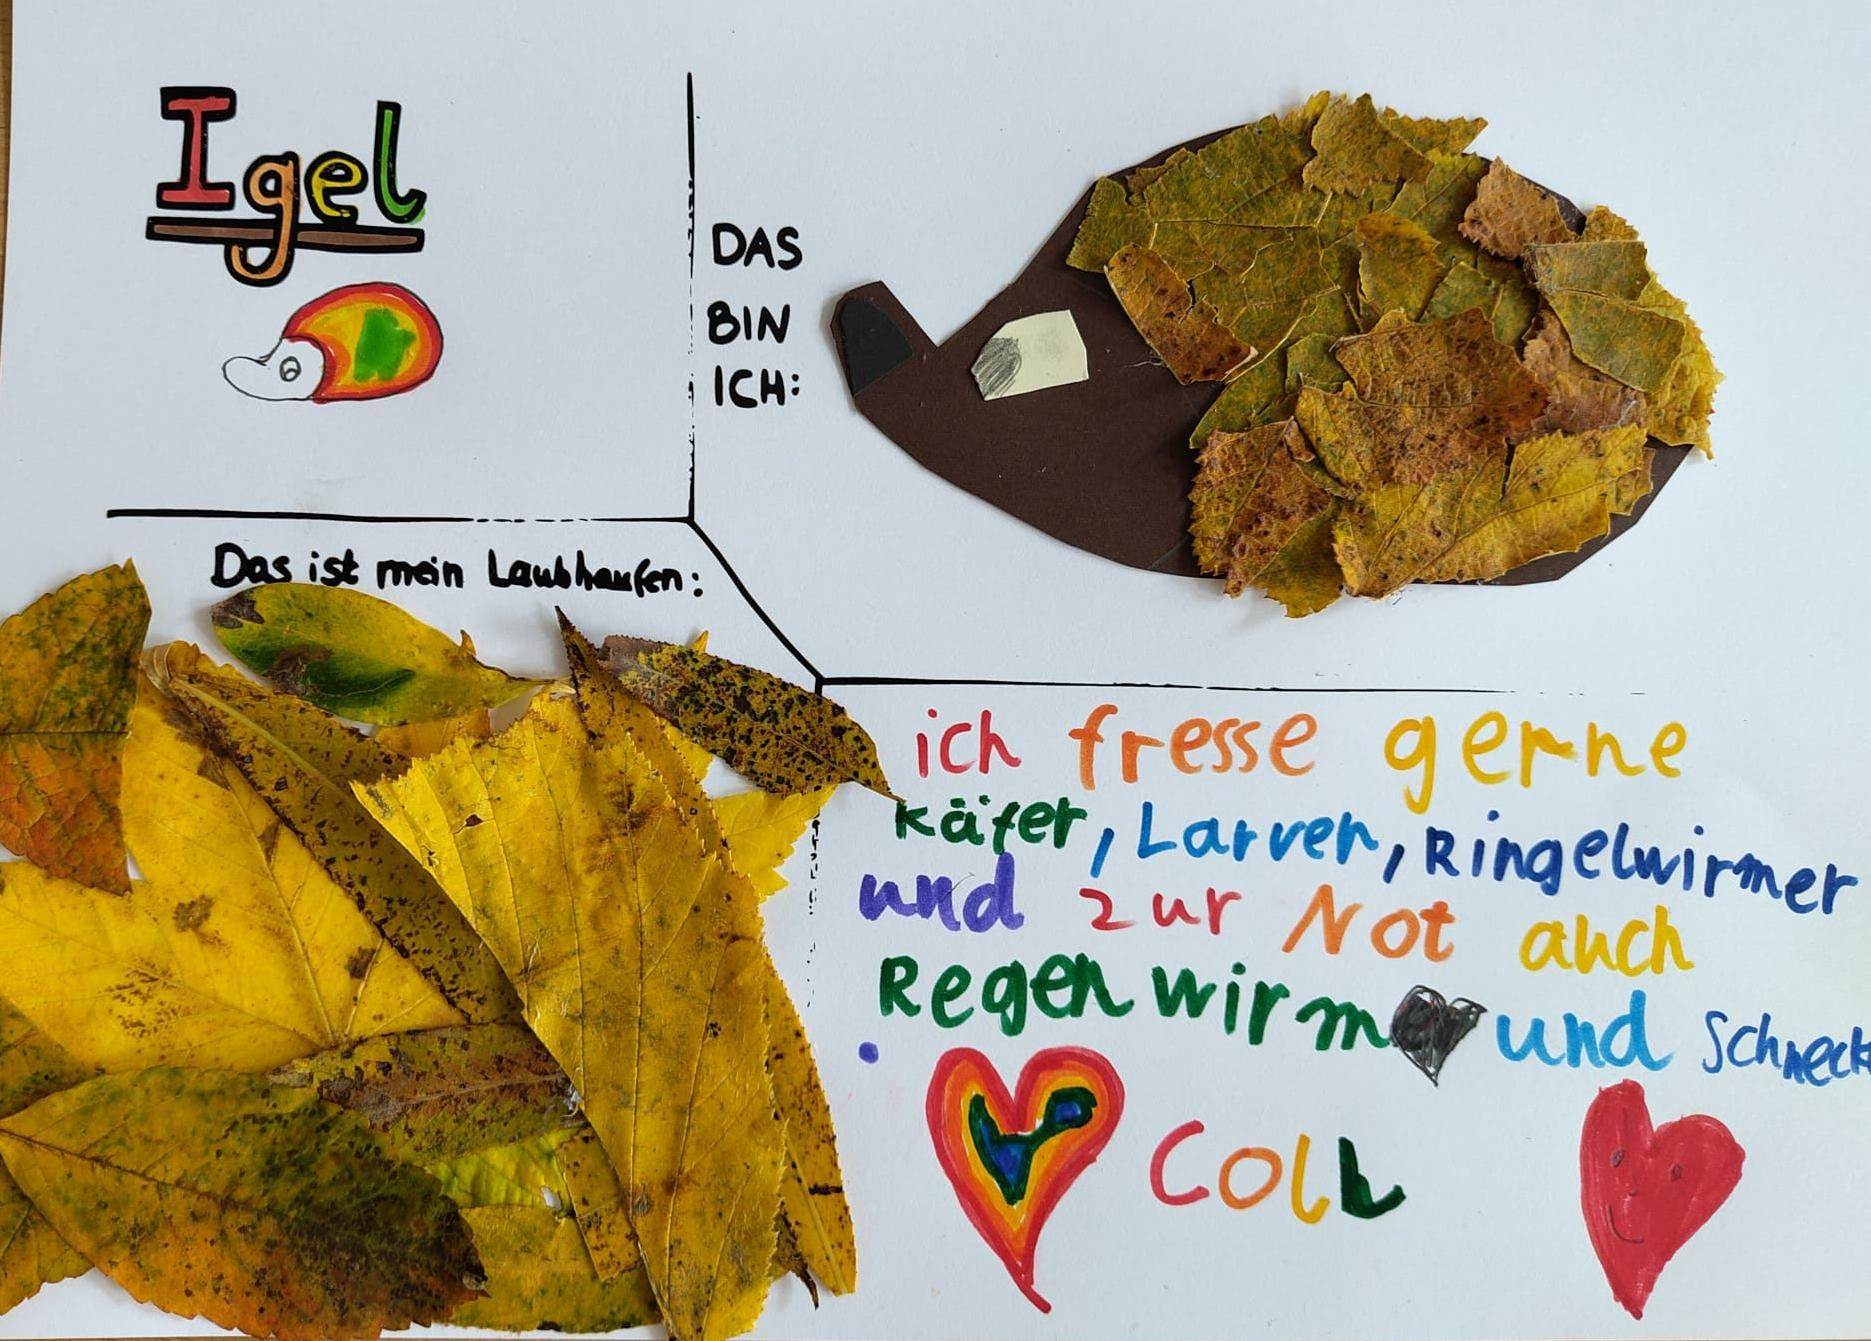 Igel
DAS
BIN
ICH:
Das ist mein Laubhaufen:
ich fresse gerne
käfer, Larven, Ringelwirmer
und zur Not auch
Regenwirm und
Coll